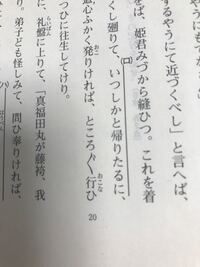 するやうにて近づくべし」と言へば、
ば、姫君みづから縫ひつ。これを着
く廻りて、(ロ)いつしかと帰りたるに、
心ふかく発りければ、ところ〴〵行ひ
つひに往生してけり。
20
に、礼盤に上りて、「真福田丸が藤袴、我
り。弟子ども怪しみて、問ひ奉りければ、
(ハ)